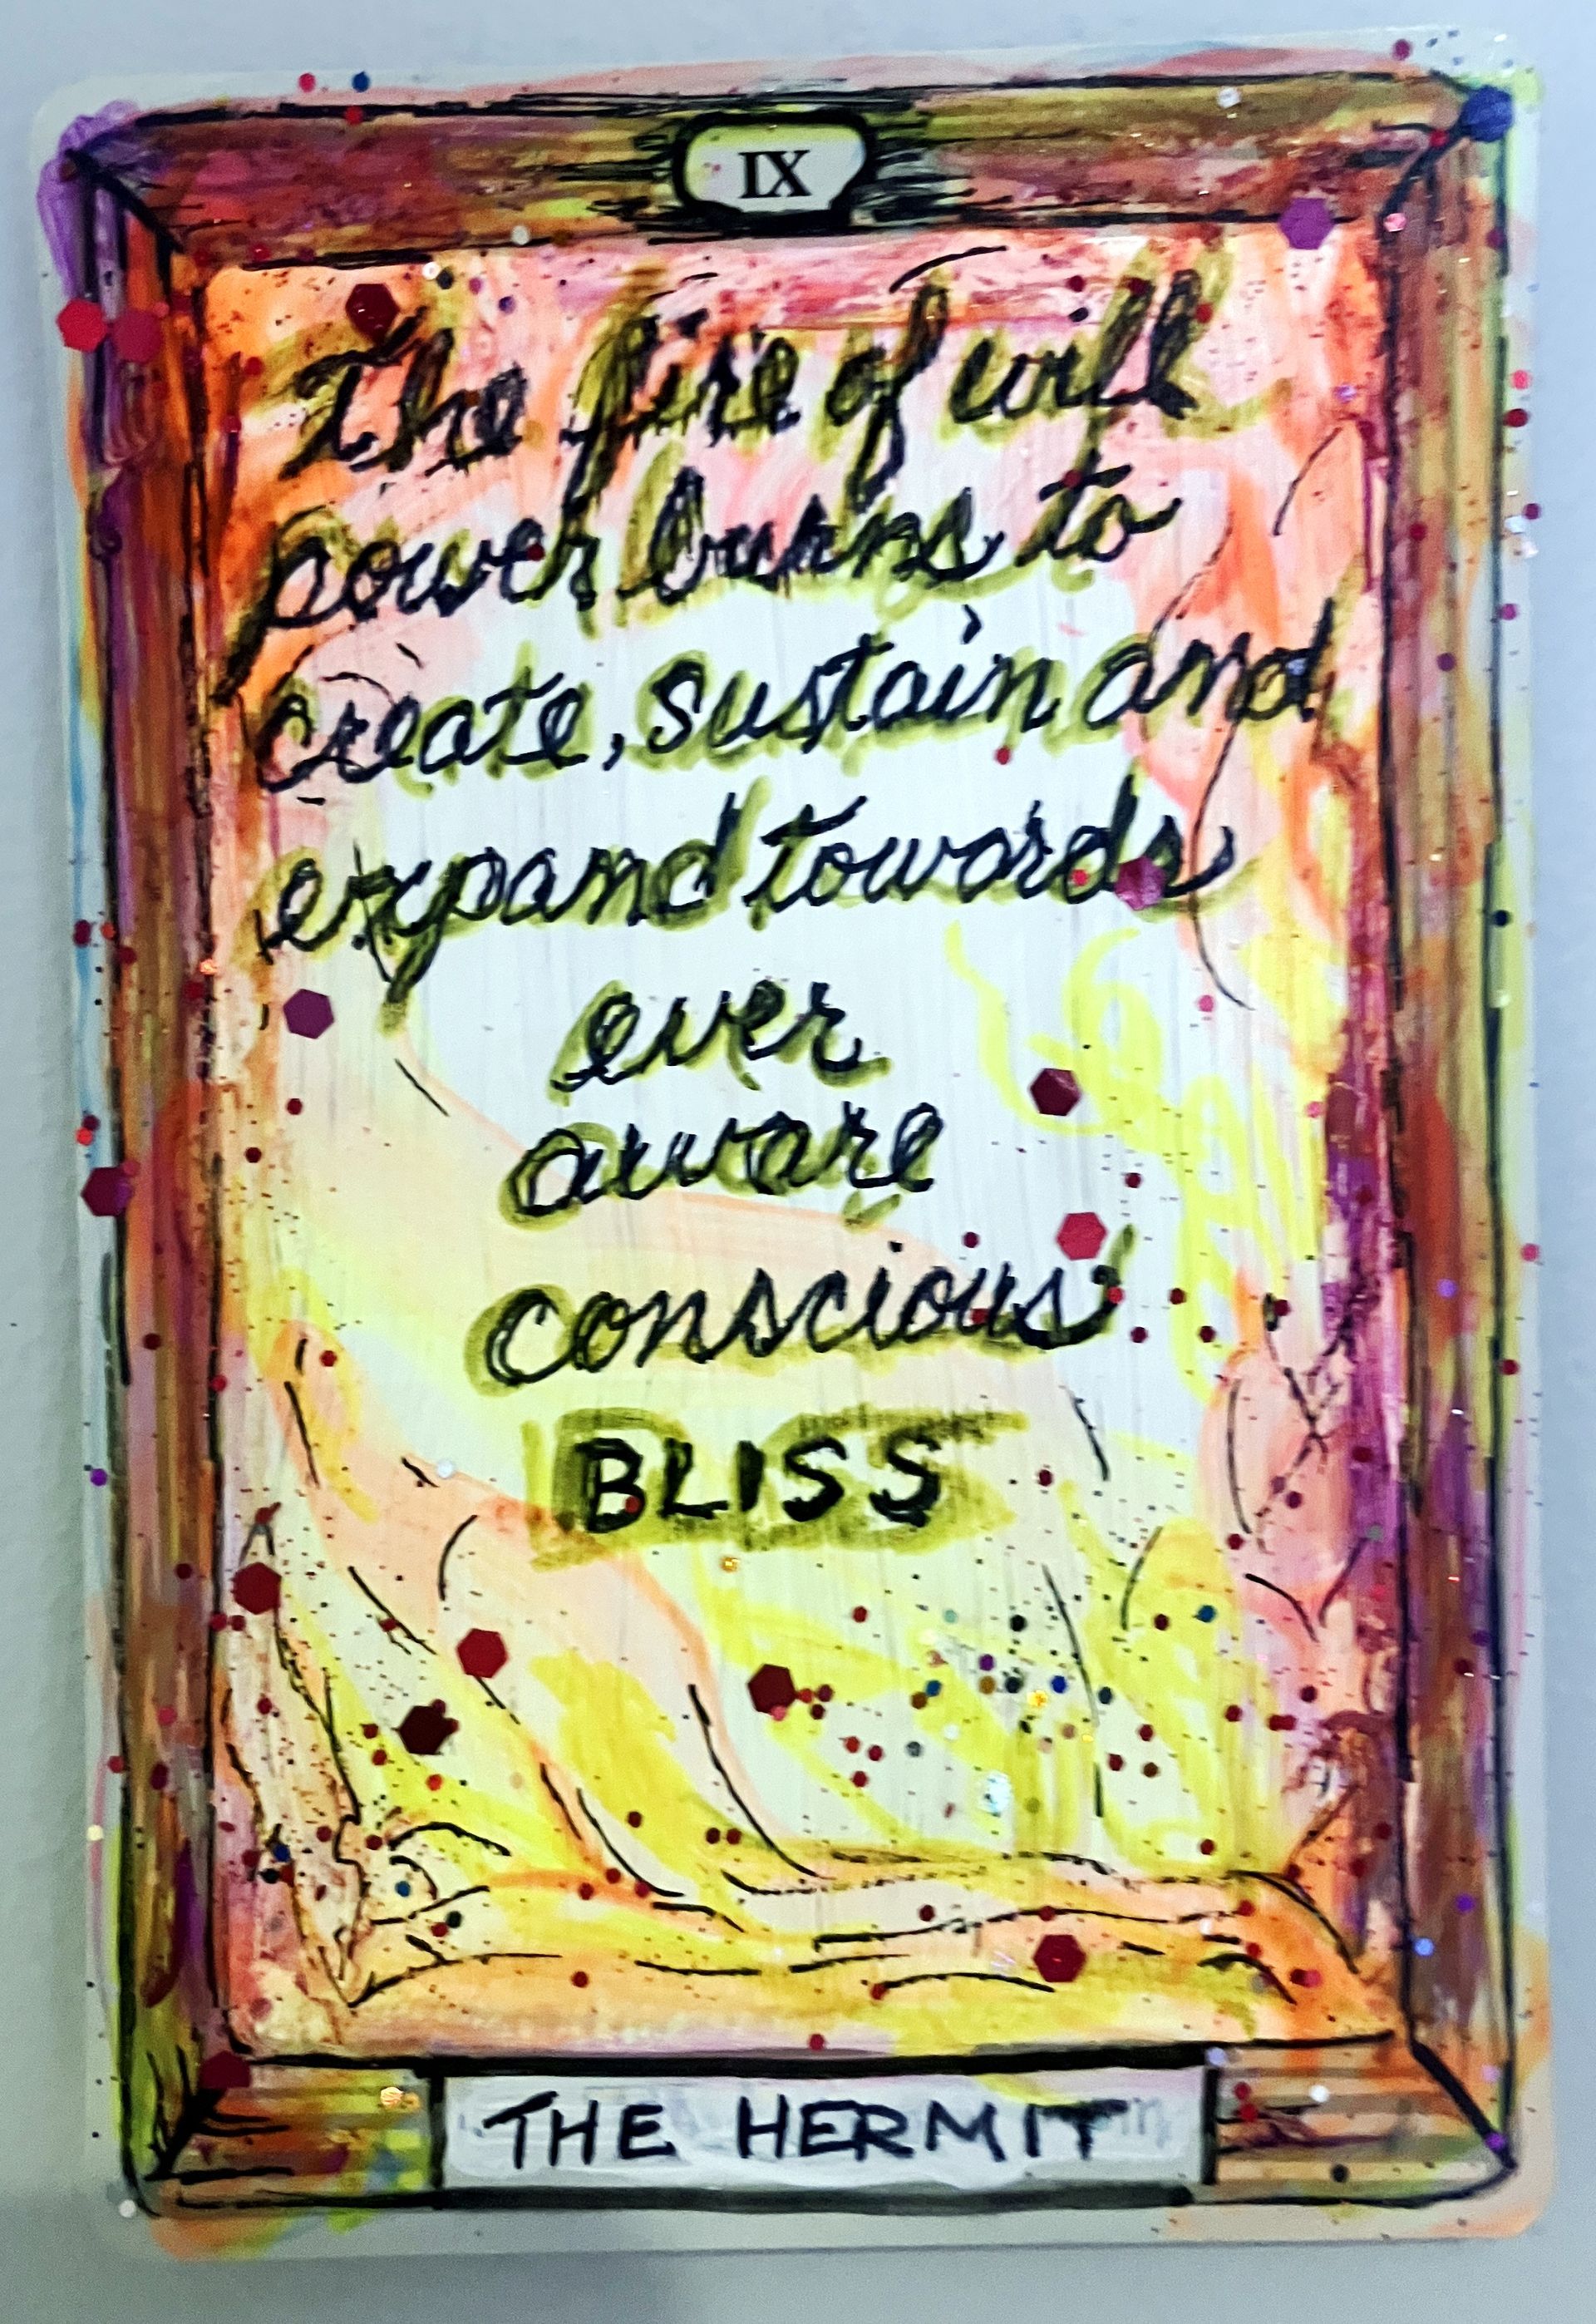 IX
The fire of will
power burns to
create, sustain and
expand towards
ever
aware
conscious
BLISS
THE HERMIT